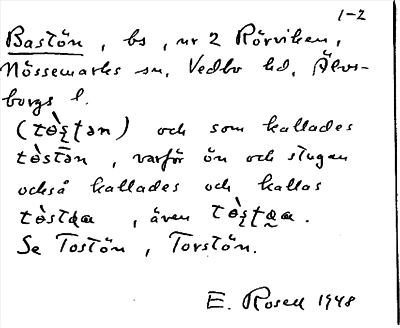 1-2
Bastön, bs, nr 2 Rörviken,
Nössemarks sn, Vedbo hd, Älvs-
borgs l.
(tò̤ş̣ţən) och som kallades
tòstən, varför ön och stugan
också kallades och kallas
tòstɑɑ, även tò̤ş̣ţɑɑ.
Se Tostön, Torstön.
E. Rosell 1948